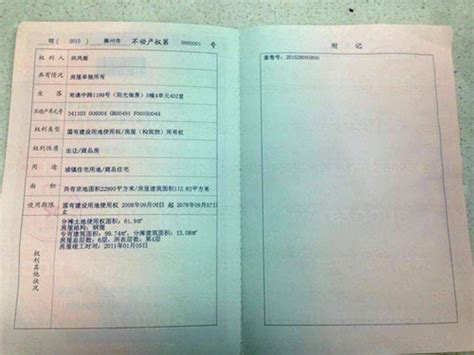 （2015）滁州市 不动产权第 0000001 号
权利人
共有情况 房屋单独所有
坐落
不动产单元号 341103 006004 GB00491 F00050044
权利类型 国有建设用地使用权/房屋（构筑物）所有权
权利性质 出让/商品房
用途 城镇住宅用地/商品住宅
面积 共有宗地面积22995平方米/房屋建筑面积112.82平方米
使用期限 国有建设用地使用权 2008年09月08日 起 2078年09月07日止
权利其他状况
分摊土地使用权面积：61.9㎡
房屋结构：钢混
专有建筑面积：99.74㎡，分摊建筑面积：13.08㎡
房屋总层数：6层，所在层数：第4层
房屋竣工时间：2011年01月05日
附记
业务号：